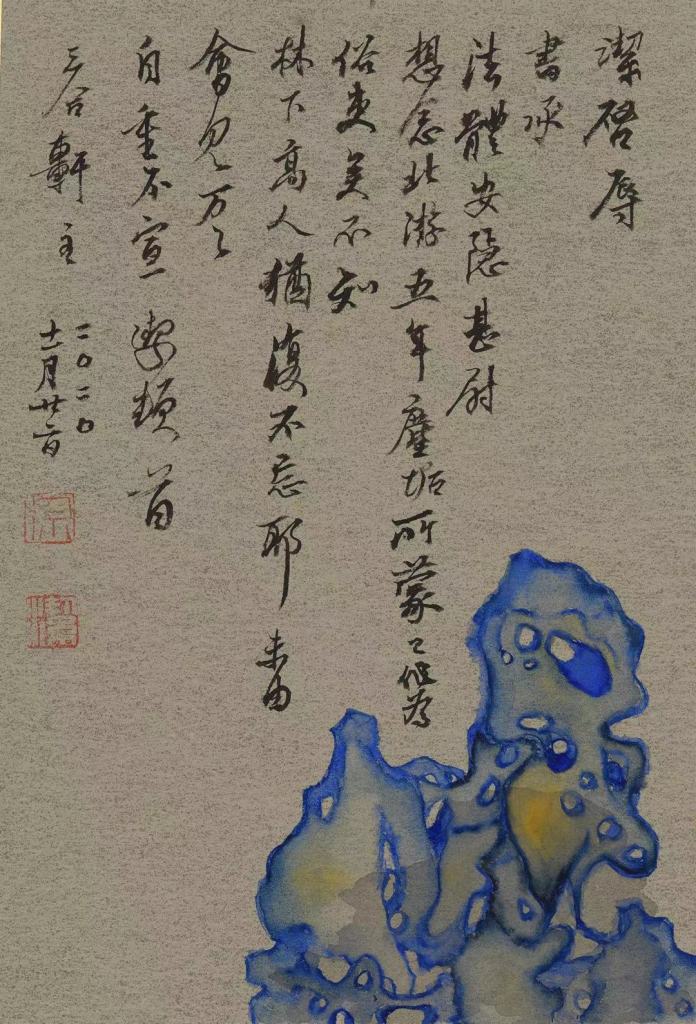 潔啓辱
書承
法體安隱甚尉
想念北游五年塵垢所蒙已化為
俗吏矣不知
林下高人猶復不忘耶未由
會見万万
自重不宣 潔頓首
三合軒主
二〇二〇
十一月廿六日